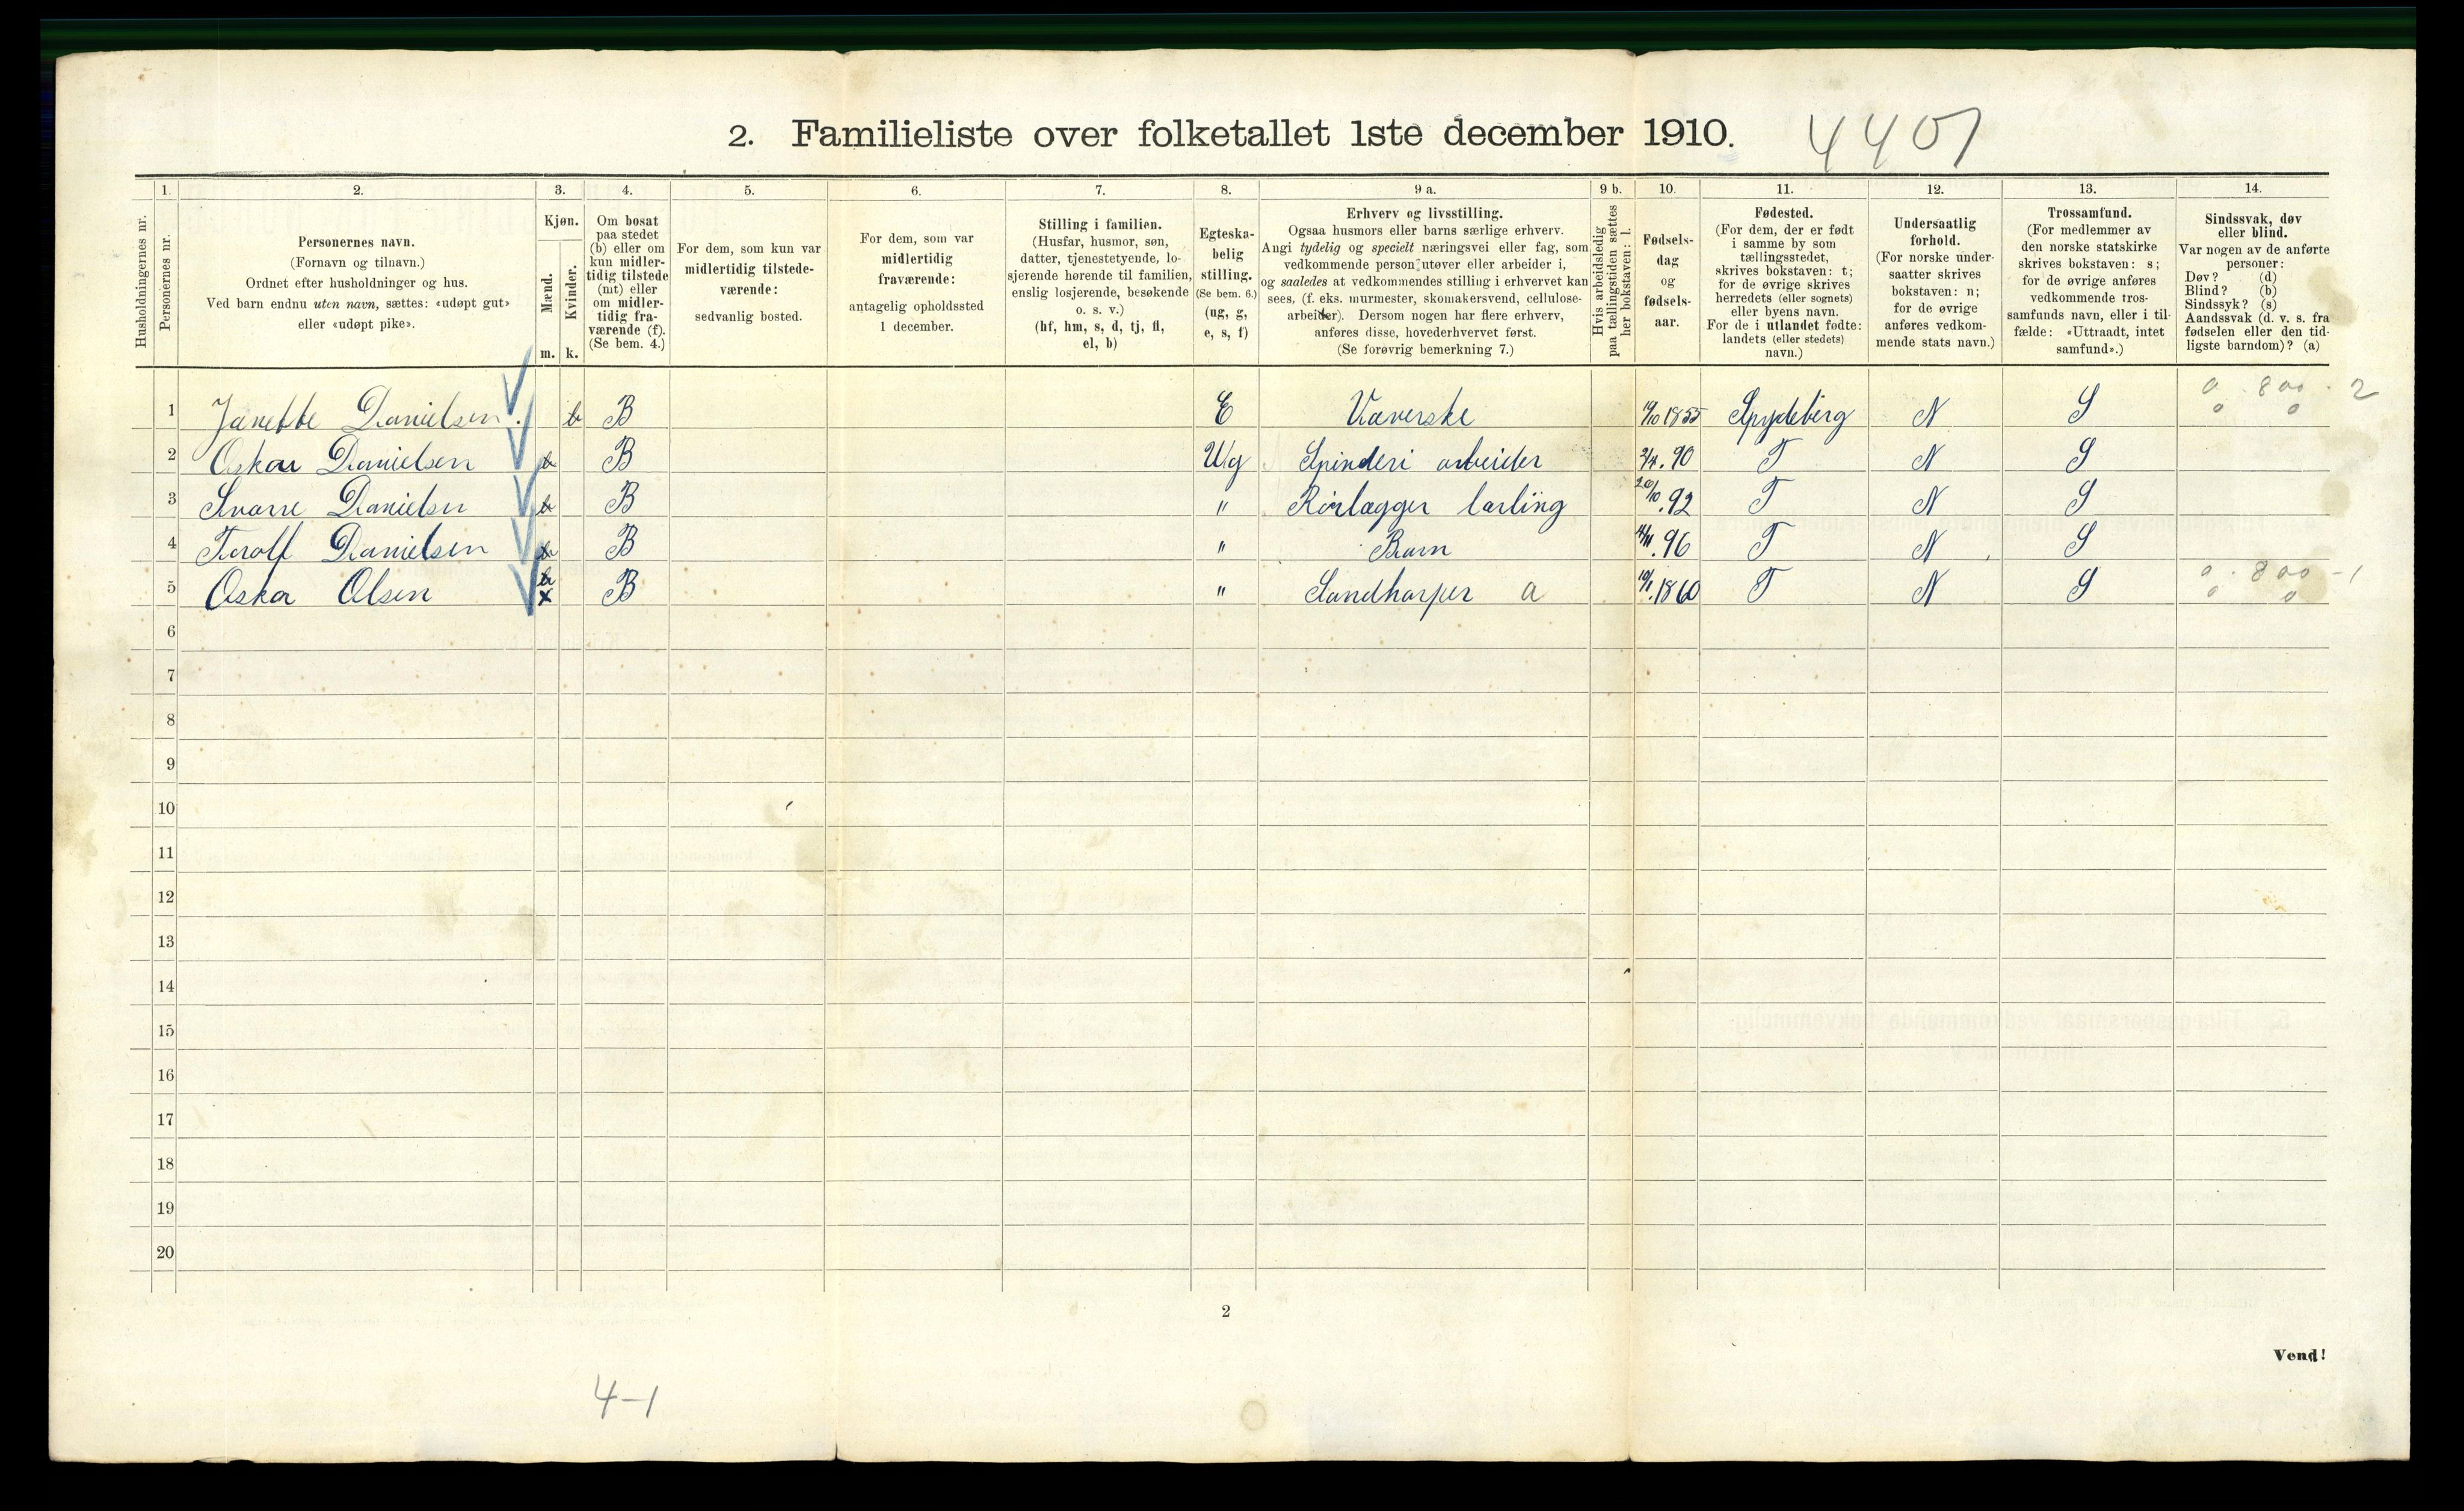 2. Familieliste over folketallet 1ste december 1910. 4407
1. 2. 3. 4. 5. 6. 7. 8. 9 a. 9 b. 10. 11. 12. 13. 14.
Husholdningernes nr.
Personernes nr.
Personernes navn.
(Fornavn og tilnavn.)
Ordnet efter husholdninger og hus.
Ved barn endnu uten navn, sættes: «udøpt gut»
eller «udøpt pike».
Kjøn.
Mænd.
Kvinder.
m. k.
Om bosat
paa stedet
(b) eller om
kun midler-
tidig tilstede
(mt) eller
om midler-
tidig fra-
værende (f).
(Se bem. 4.)
For dem, som kun var
midlertidig tilstede-
værende:
sedvanlig bosted.
For dem, som var
midlertidig
fraværende:
antagelig opholdssted
1 december.
Stilling i familien.
(Husfar, husmor, søn,
datter, tjenestetyende, lo-
sjerende hørende til familien,
enslig losjerende, besøkende
o. s. v.)
(hf, hm, s, d, tj, fl,
el, b)
Egteska-
belig
stilling.
(Se bem. 6.)
(ug, g,
e, s, f)
Erhverv og livsstilling.
Ogsaa husmors eller barns særlige erhverv.
Angi tydelig og specielt næringsvei eller fag, som
vedkommende person utøver eller arbeider i,
og saaledes at vedkommendes stilling i erhvervet kan
sees, (f. eks. murmester, skomakersvend, cellulose-
arbeider). Dersom nogen har flere erhverv,
anføres disse, hovederhvervet først.
(Se forøvrig bemerkning 7.)
Hvis arbeidsledig
paa tællingstiden sættes
her bokstaven: l.
Fødsels-
dag
og
fødsels-
aar.
Fødested.
(For dem, der er født
i samme by som
tællingsstedet,
skrives bokstaven: t;
for de øvrige skrives
herredets (eller sognets)
eller byens navn.
For de i utlandet fødte:
landets (eller stedets)
navn.)
Undersaatlig
forhold.
(For norske under-
saatter skrives
bokstaven: n;
for de øvrige
anføres vedkom-
mende stats navn.)
Trossamfund.
(For medlemmer av
den norske statskirke
skrives bokstaven: s;
for de øvrige anføres
vedkommende tros-
samfunds navn, eller i til-
fælde: «Uttraadt, intet
samfund».)
Sindssvak, døv
eller blind.
Var nogen av de anførte
personer:
Døv? (d)
Blind? (b)
Sindssyk? (s)
Aandssvak (d. v. s. fra
fødselen eller den tid-
ligste barndom)? (a)
0 · 800 · 2
0 0
1 Janette Danielsen. B E Væverske 19/10 1855 Spydeberg N S
2 Oskar Danielsen B Ug Spinderi arbeider .90 T N S
3 Danielsen B " Rørlægger lærling 20/10.92 T N S
4 Torolf Danielsen B " Barn .96 T N S
0 · 800 - 1
0 0
5 Oskar Olsen x B " Sandharper a .1860 T N S
6
7
8
9
10
11
12
13
14
15
16
17
18
19
20
2
Vend!
4-1